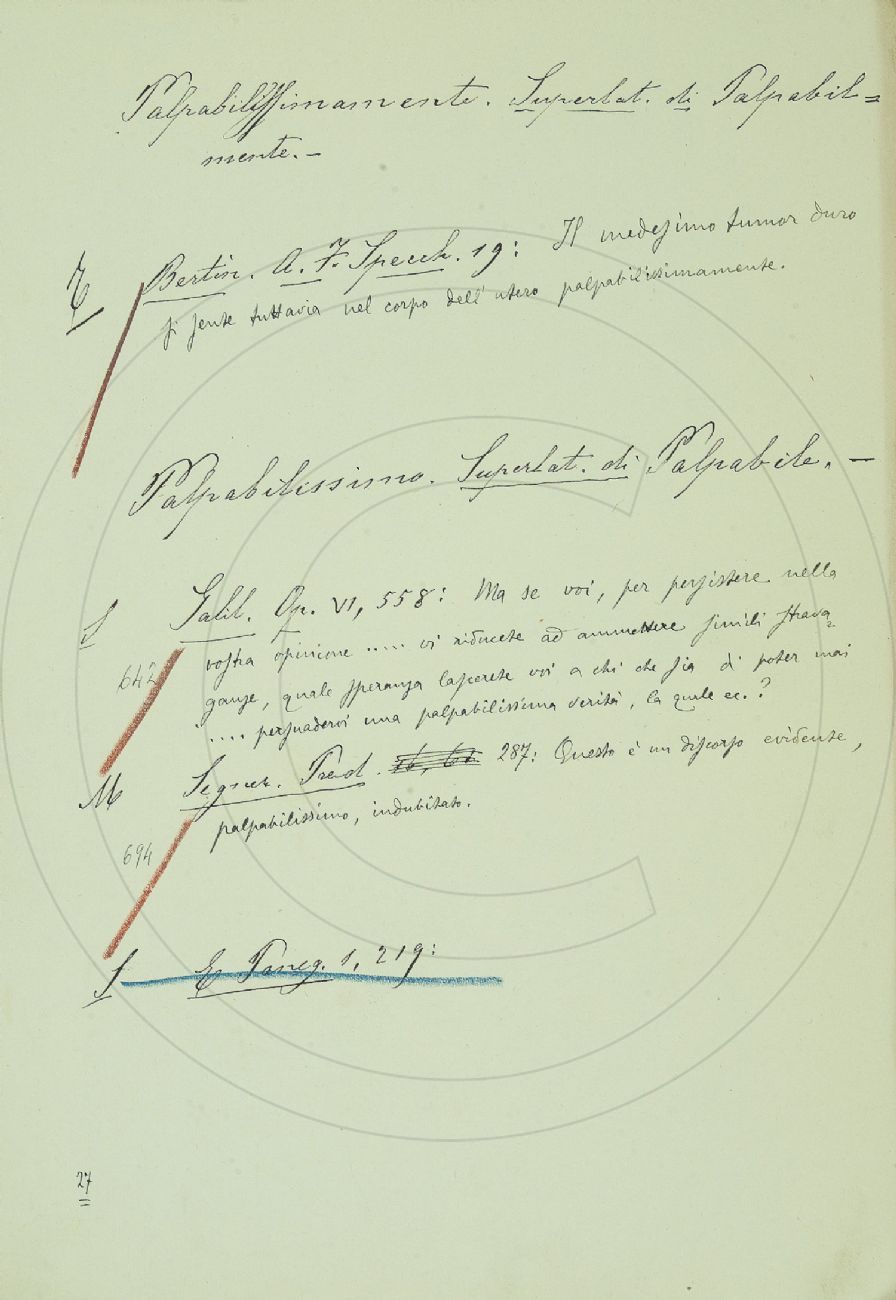 Palpabilissimamente. Superlat. di Palpabil=
mente. –
T Bertin. A. F. Specch. 19: Il medesimo tumor duro
si sente tuttavia nel corpo dell' utero palpabilissimamente.
Palpabilissimo. Superlat. di Palpabile. –
S Galil. Op. VI, 558: Ma se voi, per persistere nella
642 vostra opinione ..... vi riducete ad ammettere simili strava=
ganze, quale speranza lascerete voi a chi che sia di poter mai
.... persuadervi una palpabilissima verità, la quale ec.?
M Segner. Pred. 287: Questo è un discorso evidente,
palpabilissimo, indubitato.
694
S E Paneg. 1, 219:
27